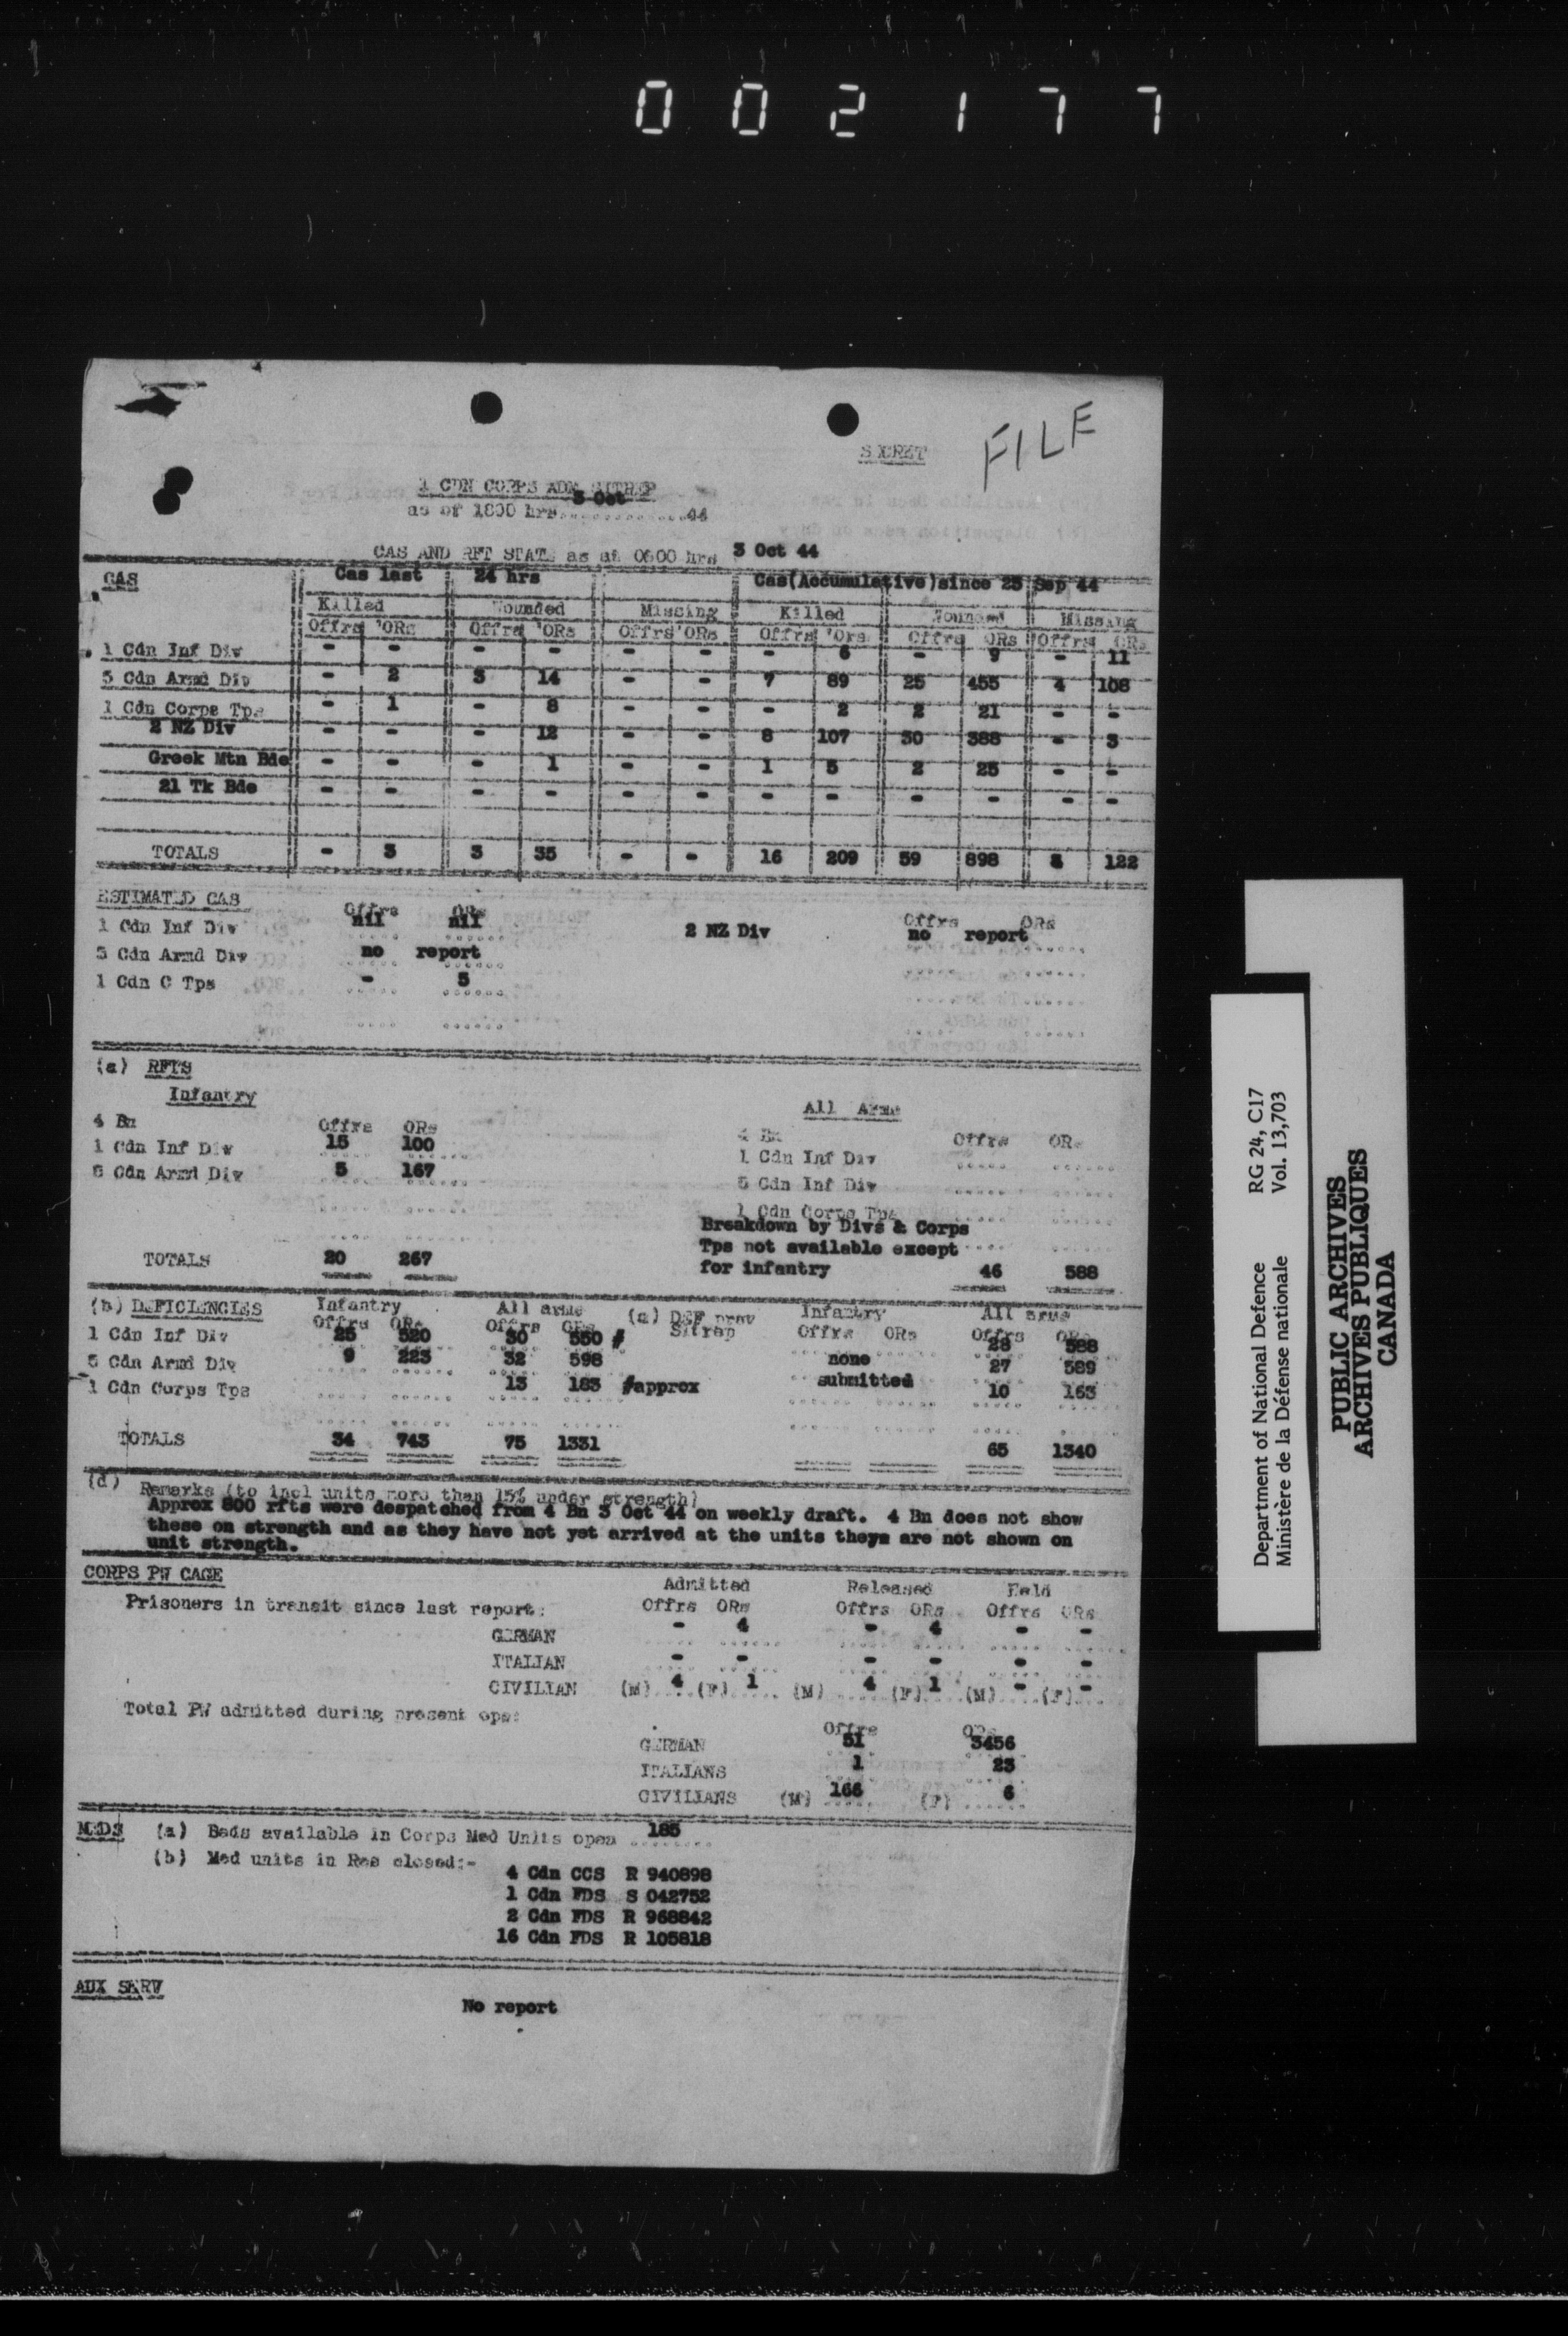 002177
FILE
SECRET
1 CDN CORPS ADM SITREP
3 Oct
as of 1800 hrs..............44
CAS AND RFT STATE as at 0600 hrs 3 Oct 44
CAS Cas last 24 hrs Cas(Accumulative)since 25 Sep 44
Killed Wounded Missing Killed Wounded Missing
Offrs ORs Offrs ORs Offrs ORs Offrs Ors Offrs ORs Offrs ORs
1 Cdn Inf Div - - - - - - - 6 - 9 - 11
5 Cdn Armd Div - 2 3 14 - - 7 89 25 455 4 108
1 Cdn Corps Tps - 1 - 8 - - - 2 2 21 - -
2 NZ Div - - - 12 - - 8 107 30 388 - 3
Greek Mtn Bde - - - 1 - - 1 5 2 25 - -
21 Tk Bde - - - - - - - - - - - -
TOTALS - 3 3 35 - - 16 209 59 898 122
ESTIMATED CAS Offrs ORs Offrs ORs
1 Cdn Inf Div nil nil 2 NZ Div no report
5 Cdn Armd Div no report
1 Cdn C Tps - 5
(a) RFTS
Infantry All Arms
4 Bn Offrs ORs 4 Bn Offrs ORs
1 Cdn Inf Div 15 100 1 Cdn Inf Div
5 Cdn Armd Div 5 167 5 Cdn Inf Div
1 Cdn Corps Tps
Breakdown by Divs & Corps
Tps not available except
TOTALS 20 267 for infantry 46 588
(b) DEFICIENCIES Infantry All arms (a) DEF prev Sitrep Infantry All arms
Offrs ORs Offrs ORs Offrs ORs Offrs ORs
1 Cdn Inf Div 25 520 30 550 # 28 588
5 Cdn Armd Div 9 223 32 598 none 27 589
1 Cdn Corps Tps 13 183 #approx submitted 10 163
TOTALS 34 743 75 1331 65 1340
(d) Remarks (to incl units more than 15% under strength)
Approx 800 rfts were despatched from 4 Bn 3 Oct 44 on weekly draft. 4 Bn does not show
these on strength and as they have not yet arrived at the units theys are not shown on
unit strength.
CORPS PW CAGE Admitted Released Held
Prisoners in transit since last report: Offrs ORs Offrs ORs Offrs ORs
GERMAN - 4 - 4 - -
ITALIAN - - - - - -
CIVILIAN (M) 4 (F) 1 (M) 4 (F) 1 (M) - (F) -
Total PW admitted during present ops:
Offrs ORs
GERMAN 51 3456
ITALIANS 1 23
CIVILIANS (M) 166 (F) 6
MEDS (a) Beds available in Corps Med Units open 185
(b) Med units in Res closed:-
4 Cdn CCS R 940898
1 Cdn FDS S 042752
2 Cdn FDS R 968842
16 Cdn FDS R 105818
AUX SERV
No report
Department of National Defence RG 24, C17
Ministère de la Défense nationale Vol. 13,703
PUBLIC ARCHIVES
ARCHIVES PUBLIQUES
CANADA